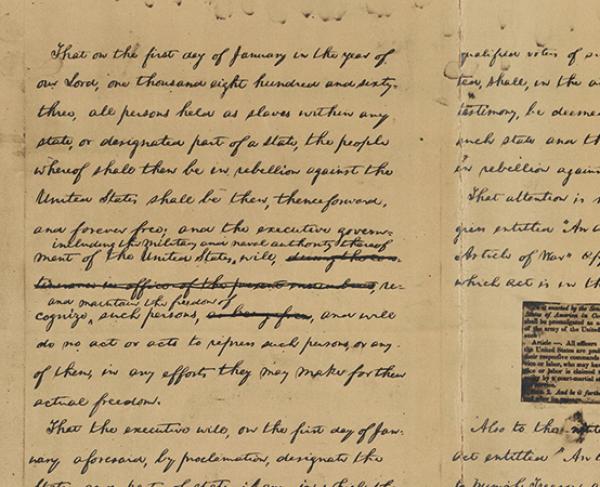 That on the first day of January in the year of
our Lord, one thousand eight hundred and sixty-
three, all persons held as slaves within any
state, or designated part of a state, the people
whereof shall then be in rebellion against the
United States shall be then, thenceforward,
and forever free; and the executive govern-
including the military and naval authority thereof
ment of the United States, will, during the con-
tinuance in office of the present incumbent, re-
and maintain the freedom of
cognize, such persons, as being free, and will
do no act or acts to repress such persons, or any
of them, in any efforts they may make for their
actual freedom.
That the executive will, on the first day of Jan-
uary aforesaid, by proclamation, designate the
qualified voters of
shall, in the
testimony, be deemed
such state and th
in rebellion again
That attention is
gress entitled "An
Article of War"
which act is in th
shall be promulgated
of the army of the United
Article —. All officers
the United States are
their respective commands
vice or labor, who may have
vice or labor is claimed
by a court-martial
service.
And be it furth
Also to the
act entitled "An